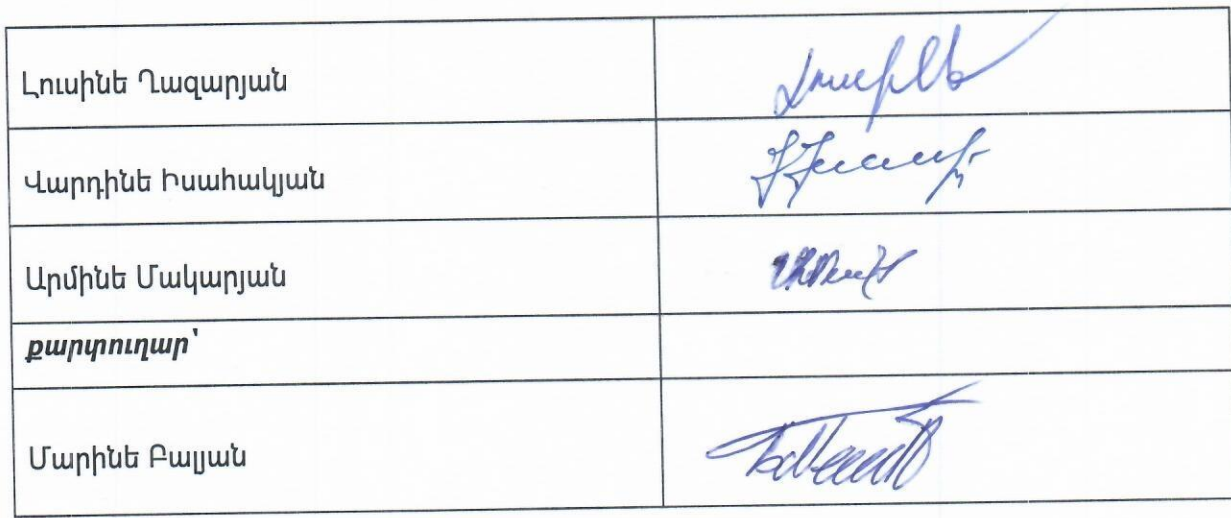 Լուսինե Ղազարյան
Վարդինե Իսահակյան
Արմինե Մակարյան
քարտուղար՝
Մարինե Բալյան